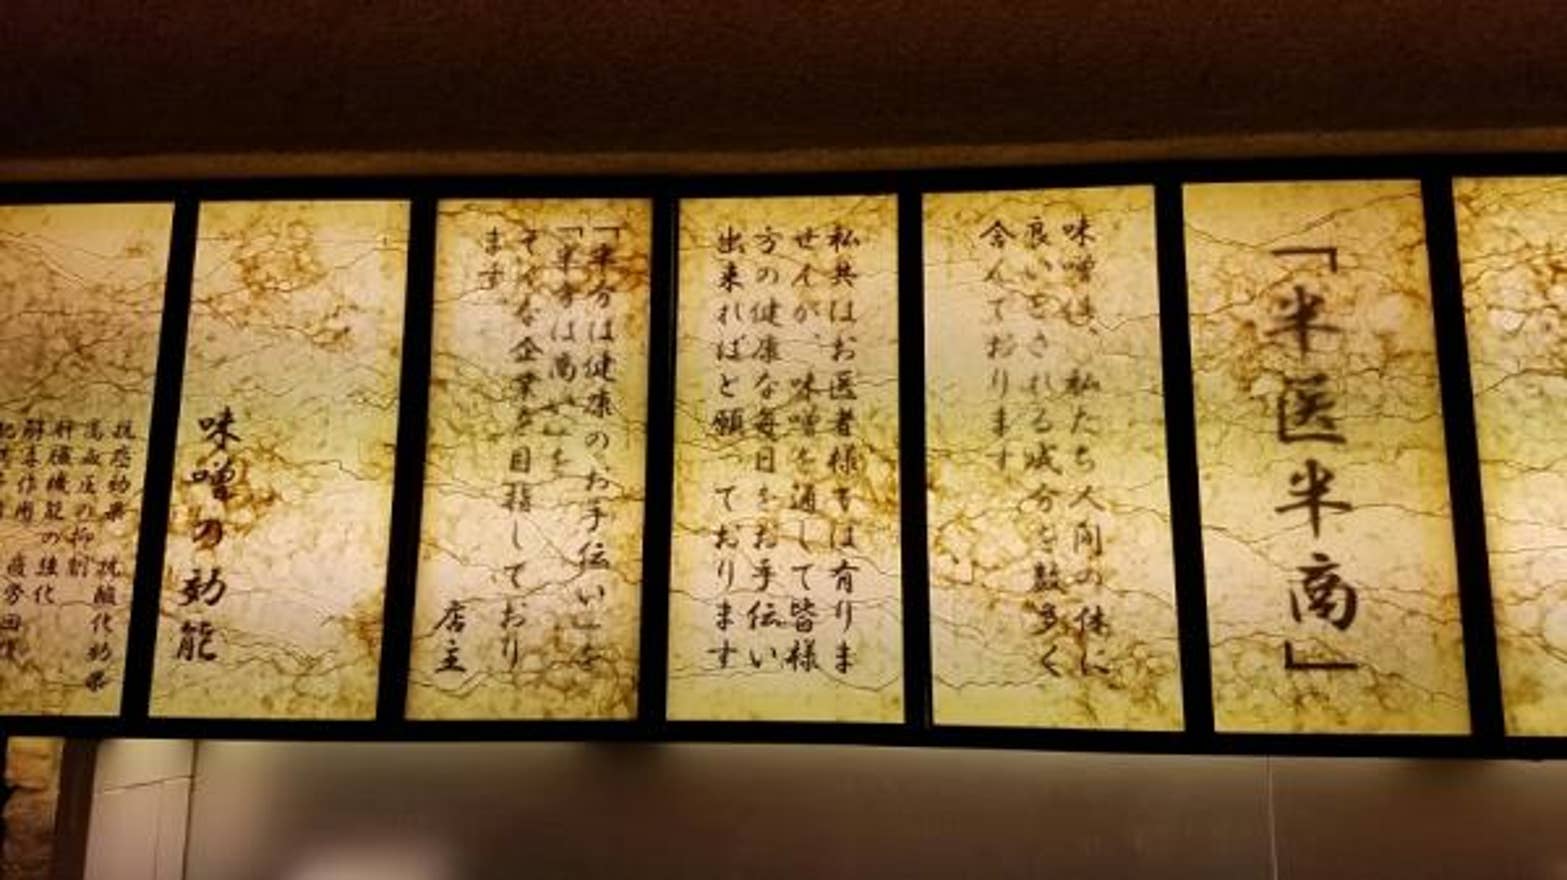 「半医半商」
味噌は、私たち人間の体に
良いとされる成分を数多く
含んでおります
私共はお医者様では有りま
せんが、味噌を通して皆様
方の健康な毎日をお手伝い
出来ればと願っております
「半分は健康のお手伝い」を
「半分は商い」を
そんな企業を目指しており
ます
店主
味噌の効能
抗癌効果 抗酸化効果
高血圧の抑制
肝臓機能の強化
解毒作用 疲労回復